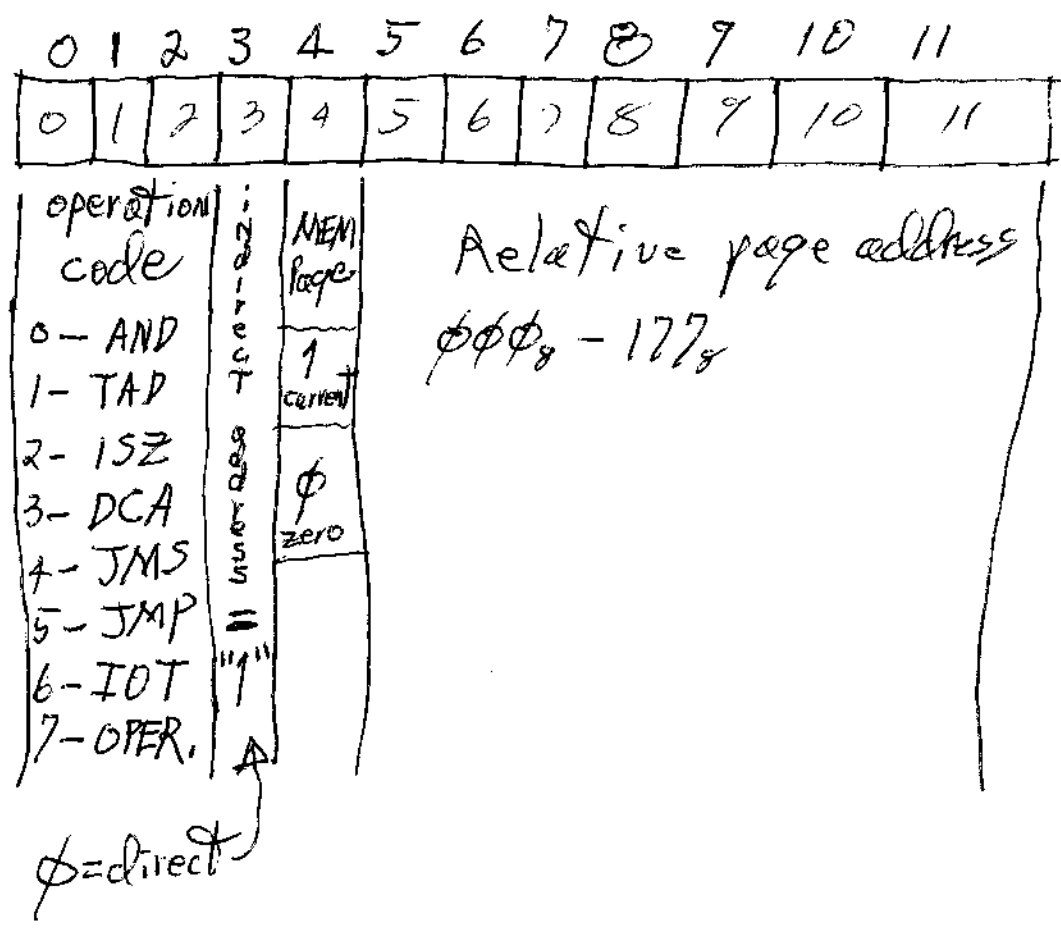 0 1 2 3 4 5 6 7 8 9 10 11
0 1 2 3 4 5 6 7 8 9 10 11
operation
code
0 - AND
1 - TAD
2 - ISZ
3 - DCA
4 - JMS
5 - JMP
6 - IOT
7 - OPER.
indirect address = "1"
φ = direct
MEM
Page
1
current
φ
zero
Relative page address
φφφ₈ - 177₈